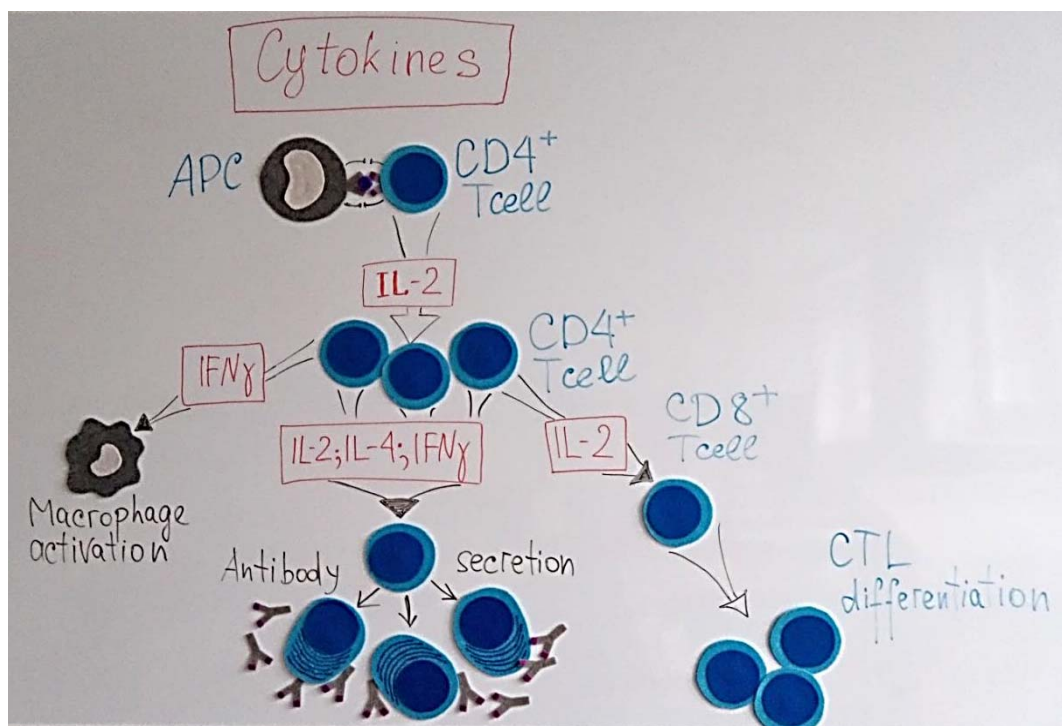 Cytokines
APC
CD4+
Tcell
IL-2
CD4+
Tcell
IFNγ
IL-2;IL-4;IFNγ
IL-2
CD8+
Tcell
Macrophage
activation
Antibody secretion
CTL
differentiation